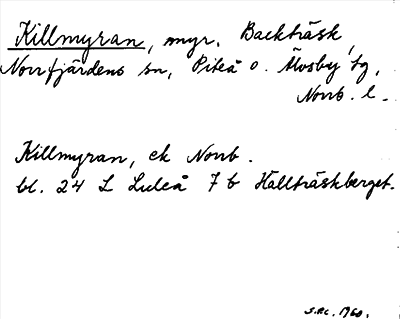 Killmyran, myr, Backträsk,
Norrfjärdens sn, Piteå o. Älvsby tg,
Norrb. l.
Killmyran, ek Norrb.
bl. 24 L Luleå 7 b Hällträskberget.
1960.